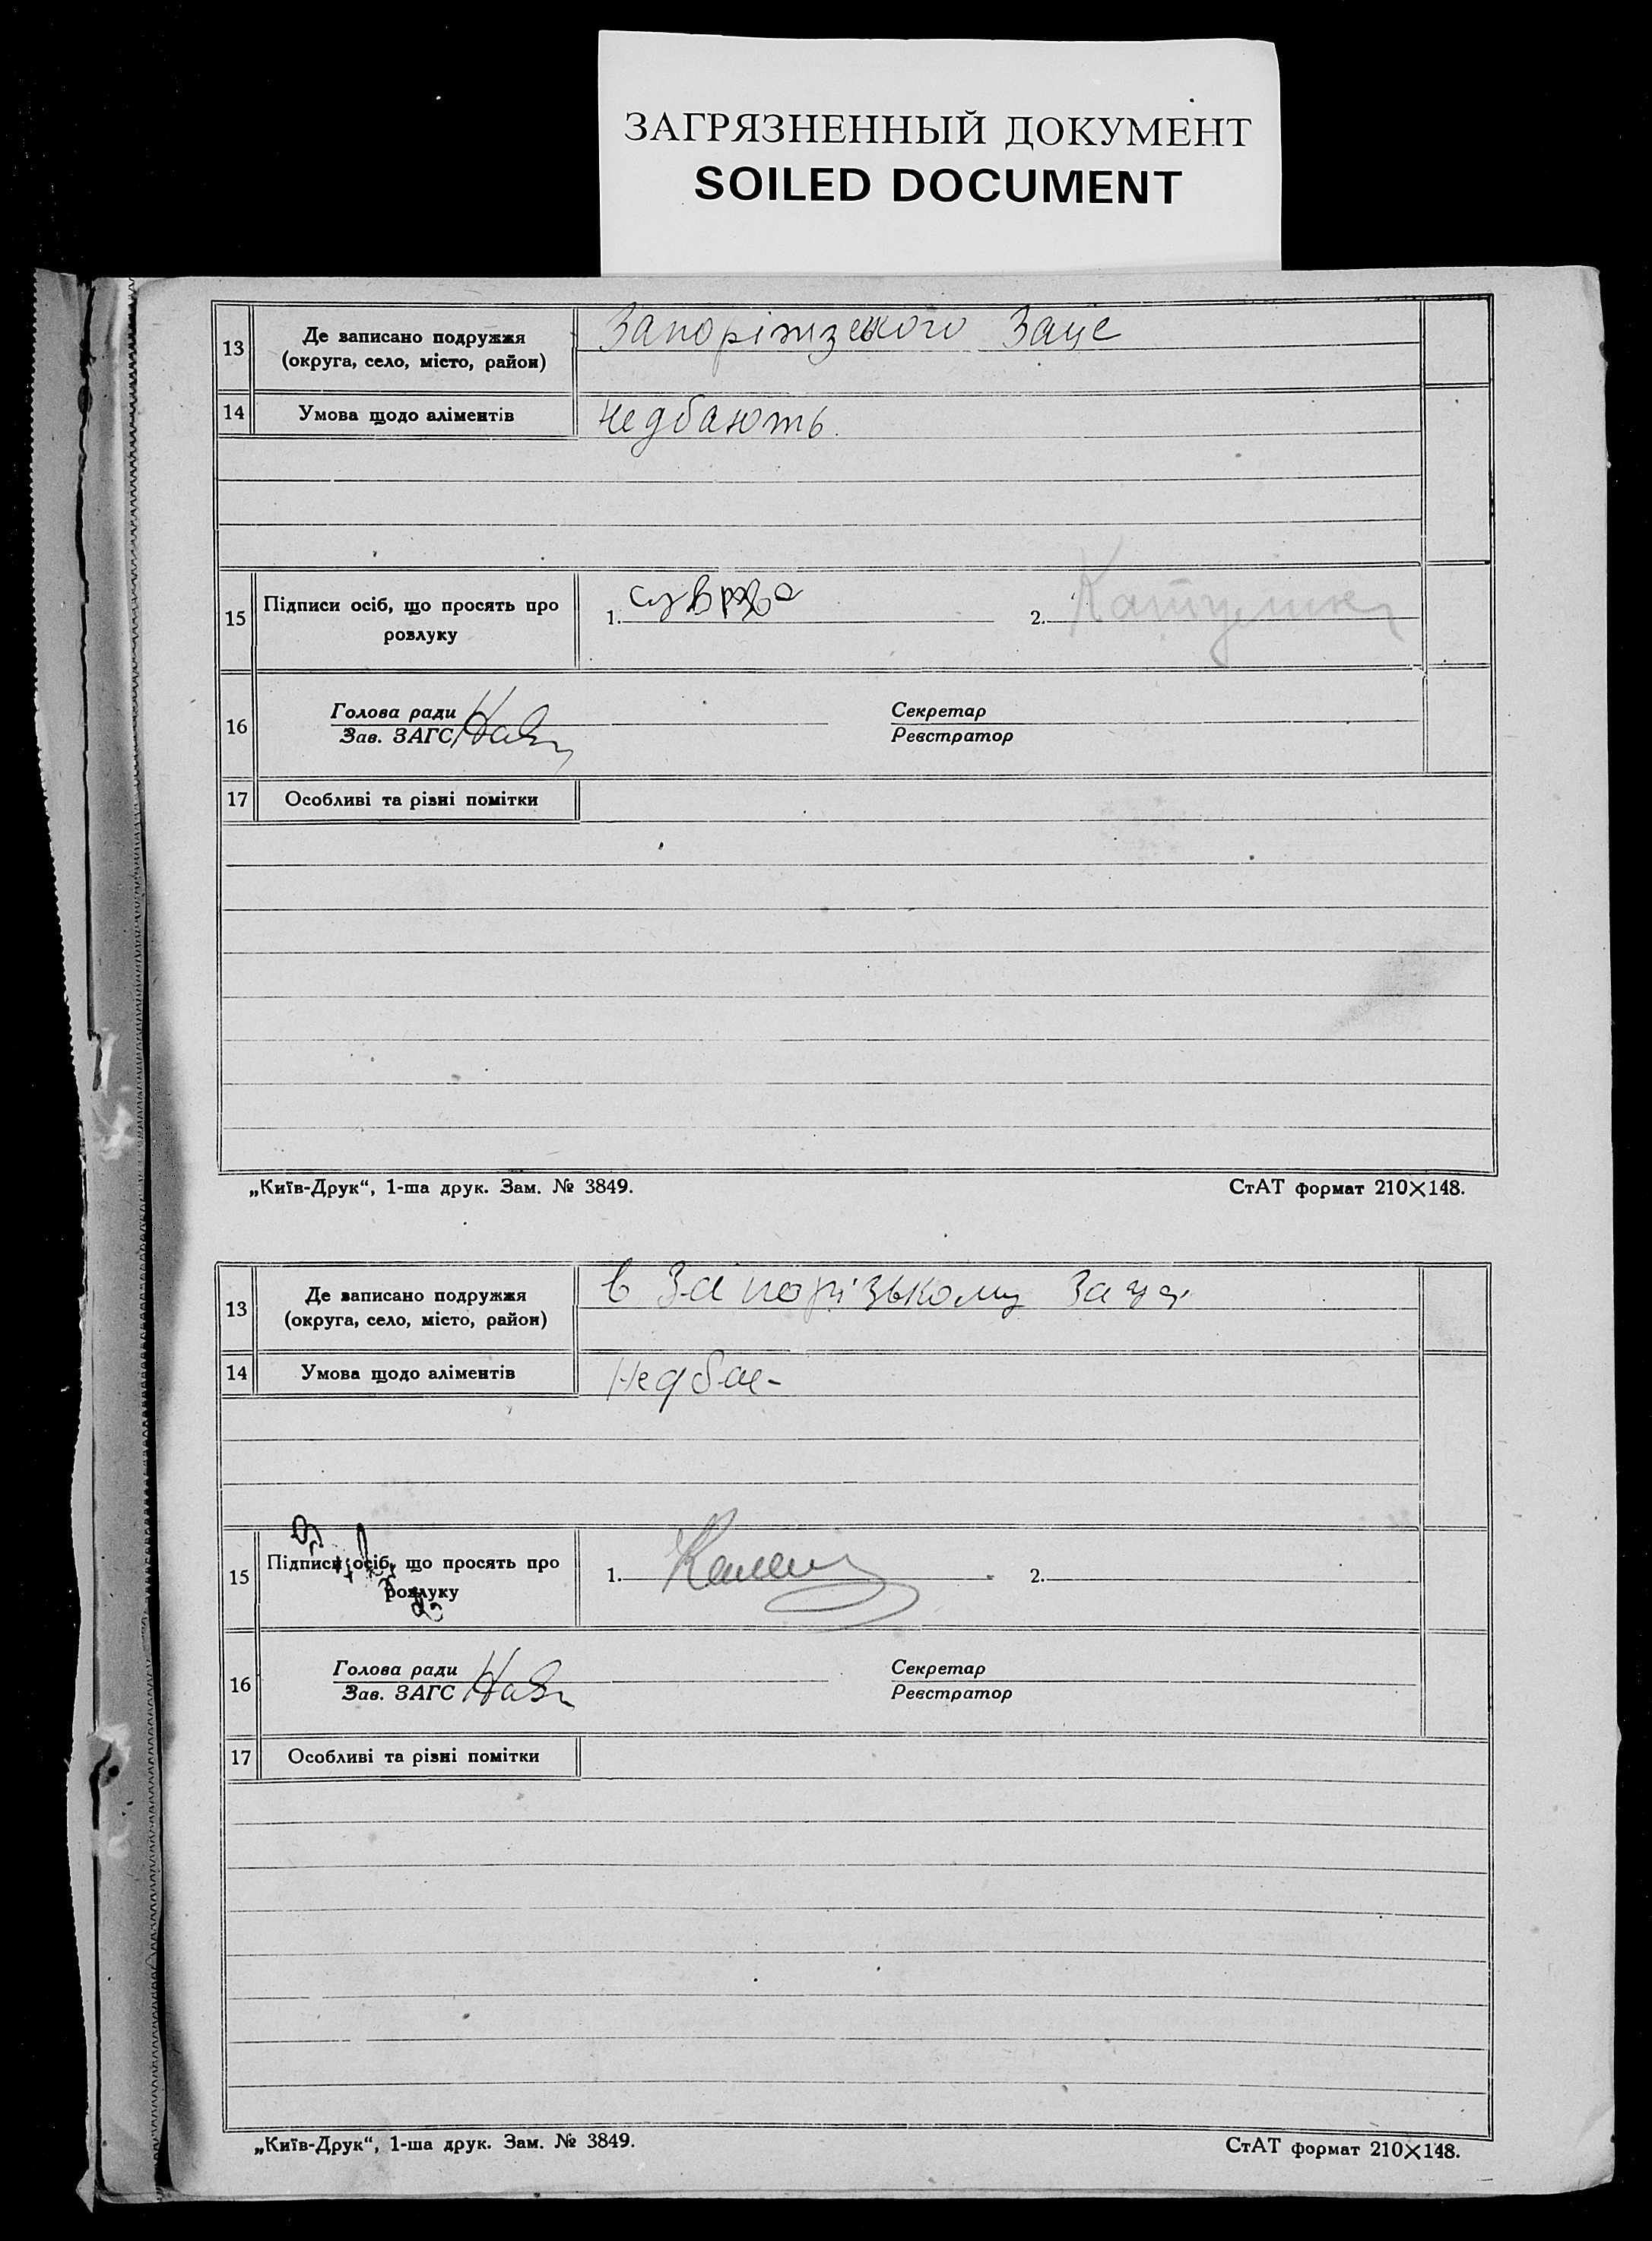 ЗАГРЯЗНЕННЫЙ ДОКУМЕНТ
SOILED DOCUMENT
13
Де записано подружжя
(округа, село, місто, район)
Запоріжзського Загс
14
Умова щодо аліментів
недбають
15
Підписи осіб, що просять про
розлуку
1.
2.
16
Голова ради
Зав. ЗАГС
Секретар
Реєстратор
17
Особливі та різні помітки
„Київ-Друк“, 1-ша друк. Зам. № 3849.
СтАТ формат 210×148.
13
Де записано подружжя
(округа, село, місто, район)
в Запорізькому
14
Умова щодо аліментів
Недбає
15
Підписи осіб, що просять про
розлуку
1.
2.
16
Голова ради
Зав. ЗАГС
Секретар
Реєстратор
17
Особливі та різні помітки
„Київ-Друк“, 1-ша друк. Зам. № 3849.
СтАТ формат 210×148.